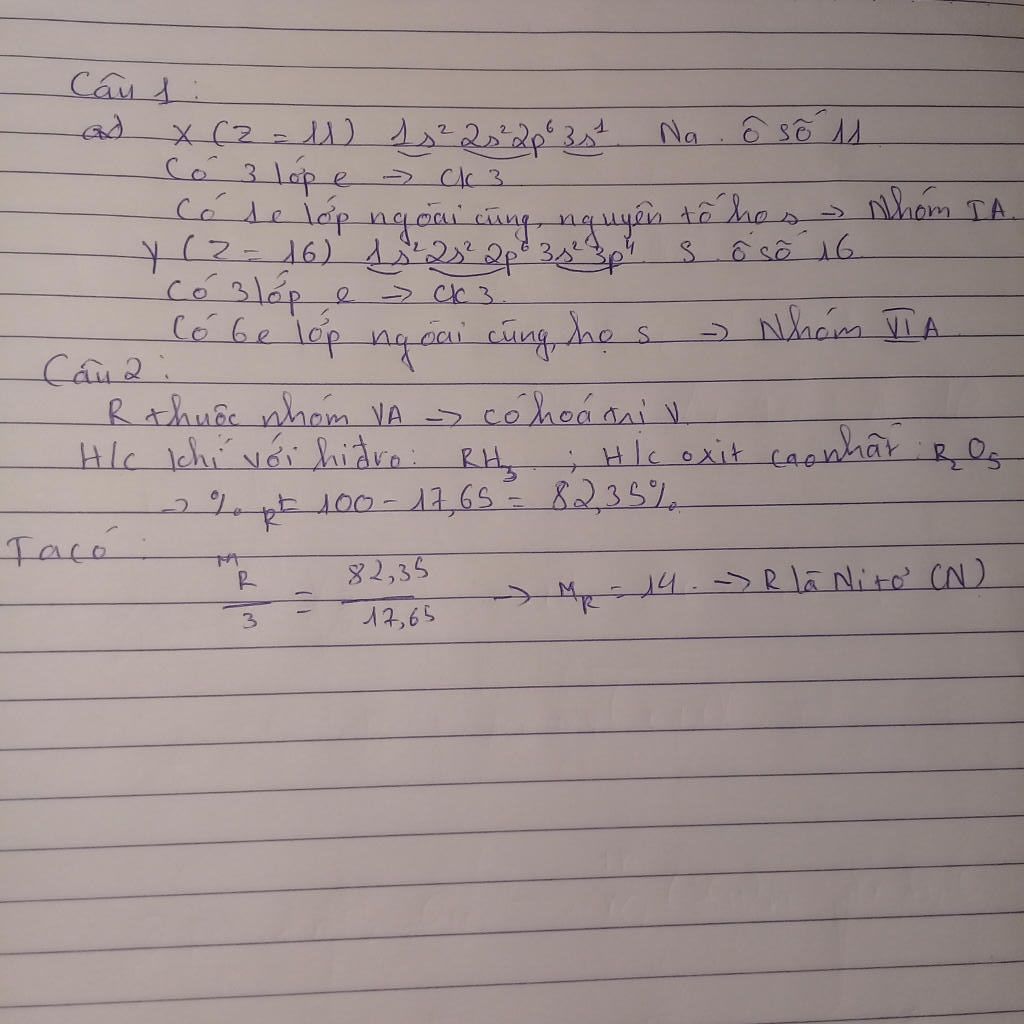 Câu 1:
a) X (Z = 11) 1s² 2s² 2p⁶ 3s¹. Na. ô số 11
Có 3 lớp e → CK 3
Có 1e lớp ngoài cùng, nguyên tố họ s → Nhóm IA.
Y (Z = 16) 1s² 2s² 2p⁶ 3s² 3p⁴. S ô số 16
Có 3 lớp e → CK 3.
Có 6e lớp ngoài cùng, họ s → Nhóm VIA
Câu 2:
R thuộc nhóm VA → có hoá trị V.
H/c khí với hiđro: RH₃ ; H/c oxit cao nhất: R₂O₅
→ %R = 100 - 17,65 = 82,35%.
Ta có:
M_R / 3 = 82,35 / 17,65 → M_R = 14. → R là Nitơ (N)